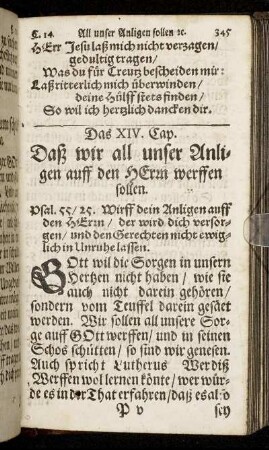 C. 14. All unser Anligen sollen ꝛc. 345
HErr Jesu laß mich nicht verzagen/
gedultig tragen/
Was du für Creutz bescheiden mir:
Laß ritterlich mich überwinden/
deine Hülff stets finden/
So wil ich hertzlich dancken dir.
Das XIV. Cap.
Daß wir all unser Anli-
gen auff den HErrn werffen
sollen.
Psal. 55/ 25. Wirff dein Anligen auff
den HErrn/ der wird dich versor-
gen/ und den Gerechten nicht ewig-
lich in Unruhe lassen.
GOtt wil die Sorgen in unsern
Hertzen nicht haben/ wie sie
auch nicht darein gehören/
sondern vom Teuffel darein gesäet
werden. Wir sollen all unsere Sor-
ge auff GOtt werffen/ und in seinen
Schos schütten/ so sind wir genesen.
Auch spricht Lutherus Werdiß
Werffen wol lernen könte/ wer wür-
de es in der That erfahren/ daß es also
P v sey